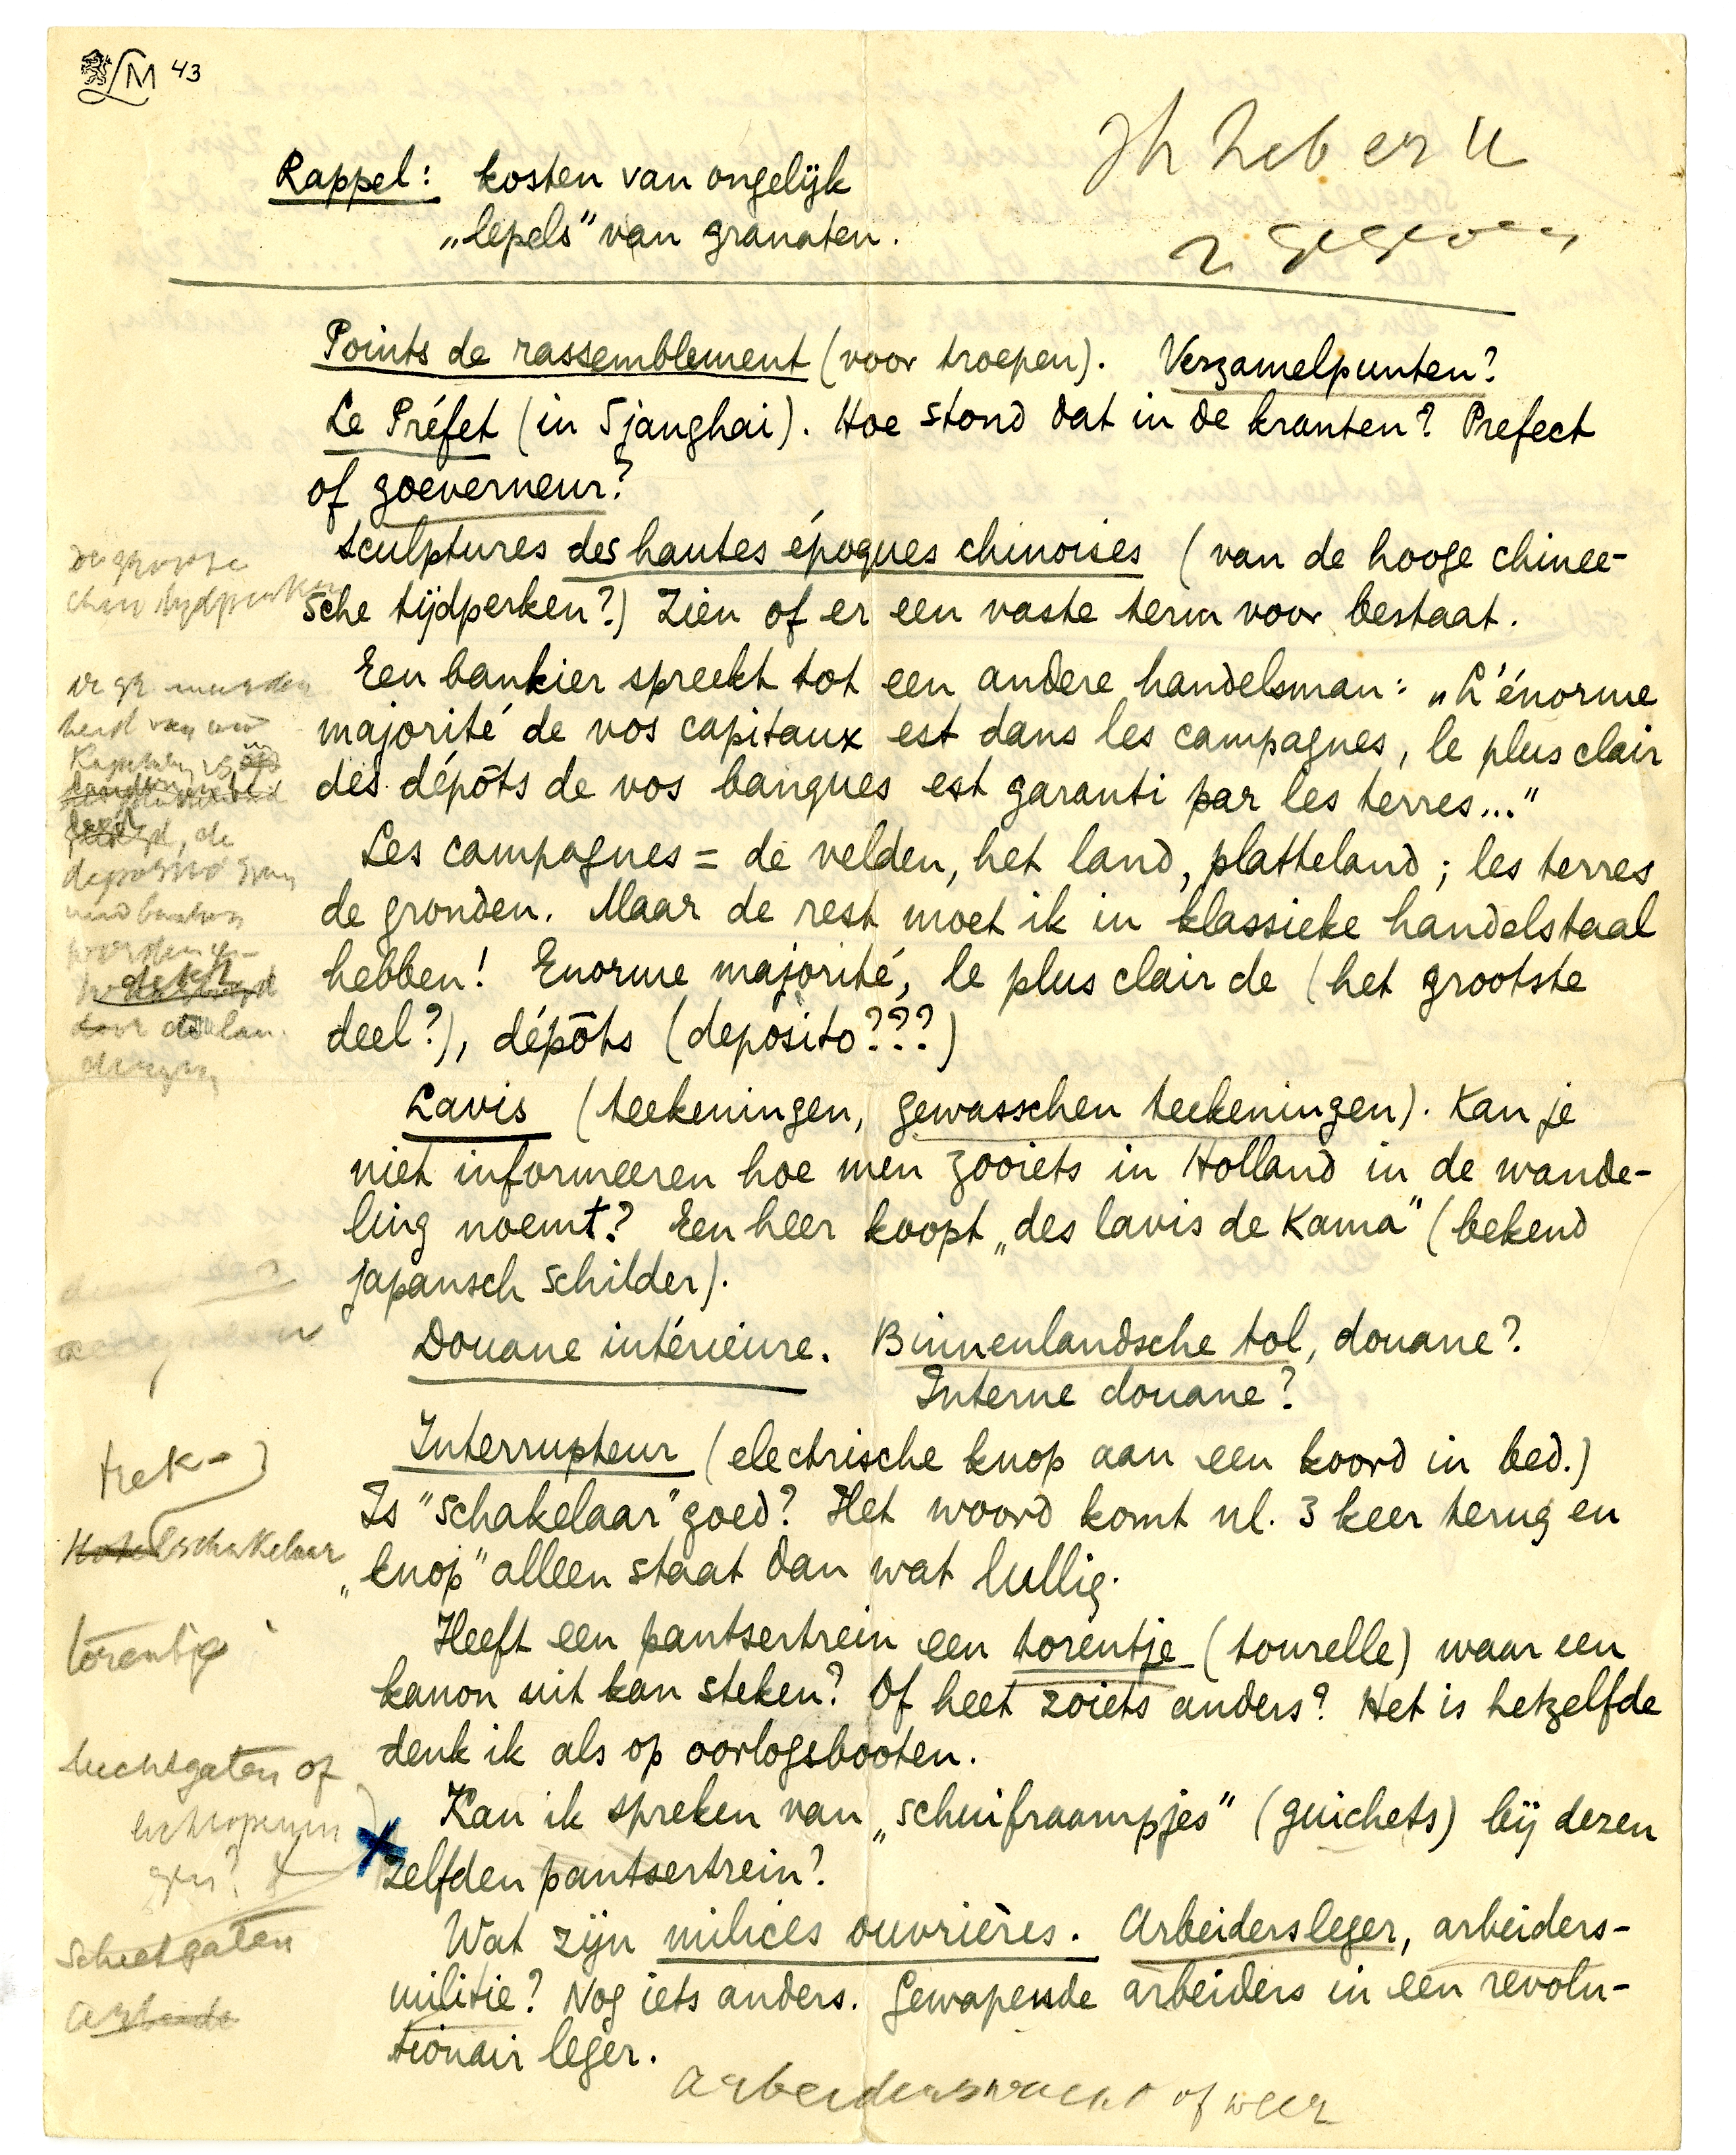 LM 43
Ik heb er u
2 gegeven
Rappel: kosten van ongelijk
„lepels” van granaten.
Points de rassemblement (voor troepen). Verzamelpunten?
Le Préfet (in Sjanghai). Hoe stond dat in de kranten? Prefect
of goeverneur?
Sculptures des hautes époques chinoises (van de hooge chinee-
sche tijdperken?) Zien of er een vaste term voor bestaat.
Een bankier spreekt tot een andere handelsman: „L'énorme
majorité de vos capitaux est dans les campagnes, le plus clair
des dépôts de vos banques est garanti par les terres...”
Les campagnes = de velden, het land, platteland; les terres
de gronden. Maar de rest moet ik in klassieke handelstaal
hebben! Enorme majorité, le plus clair de (het grootste
deel?), dépôts (deposito???)
de groote
chin tijdperken
heid van uw
de
worden ge-
dekt
door de lan-
deryen
Lavis (teekeningen, gewasschen teekeningen). Kan je
niet informeeren hoe men zooiets in Holland in de wande-
ling noemt? Een heer koopt „des lavis de Kama” (bekend
japansch schilder).
Douane intérieure. Binnenlandsche tol, douane?
Interne douane?
Interrupteur (electrische knop aan een koord in bed.)
Is "schakelaar" goed? Het woord komt nl. 3 keer terug en
„knop” alleen staat dan wat lullig.
trek-
schakelaar
Heeft een pantsertrein een torentje (tourelle) waar een
kanon uit kan steken? Of heet zoiets anders? Het is hetzelfde
denk ik als op oorlogsbooten.
torentje
Kan ik spreken van „schuifraampjes” (guichets) bij dezen
zelfden pantsertrein?
luchtgaten of
luchtopenin
gen?
Schietgaten
Wat zijn milices ouvrières. Arbeidersleger, arbeiders-
militie? Nog iets anders. Gewapende arbeiders in een revolu-
tionair leger.
Arbeide
arbeiderswacht of weer